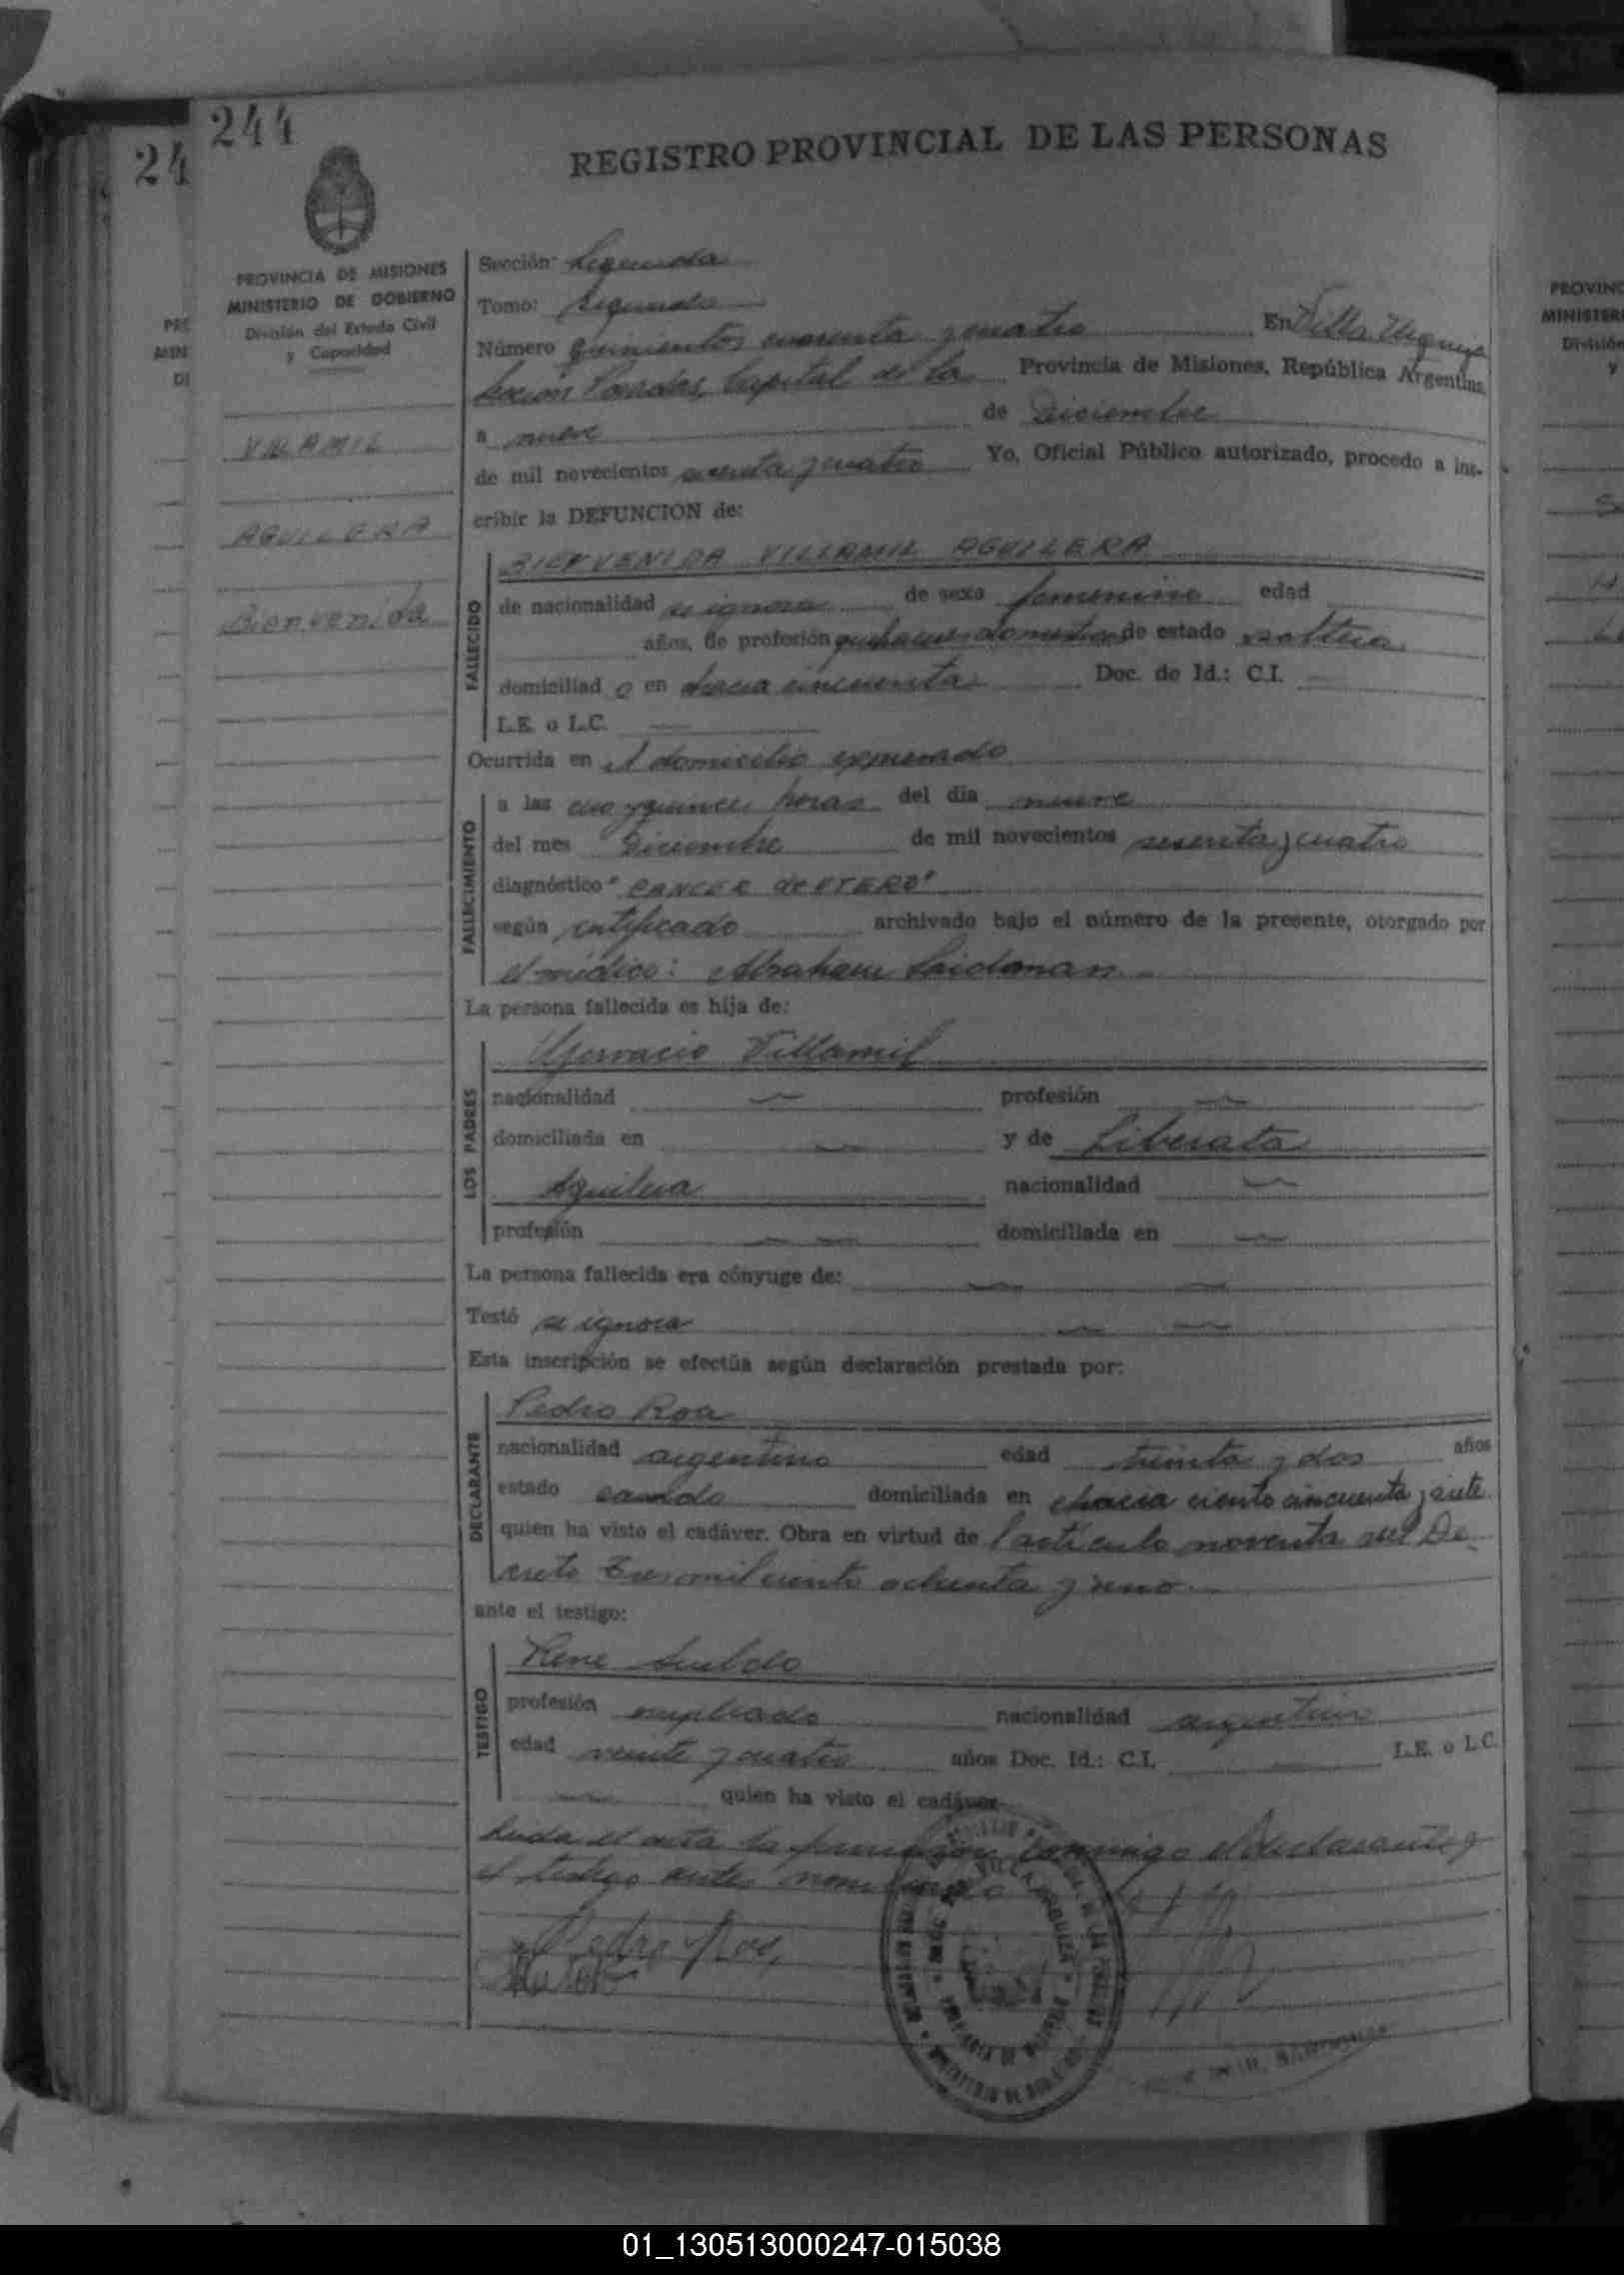 244
24
REGISTRO PROVINCIAL DE LAS PERSONAS
PROVINCIA DE MISIONES
MINISTERIO DE GOBIERNO
División del Estado Civil
y Capacidad
VILLAMIL
AGUILERA
Bienvenida
Sección: Segunda
Tomo: Segundo
Número quinientos cuarenta y cuatro En Villa Urquiza
Posadas, Capital de la Provincia de Misiones, República Argentina
a nueve de Diciembre
de mil novecientos sesenta y cuatro Yo, Oficial Público autorizado, procedo a ins-
cribir la DEFUNCION de:
FALLECIDO
BIENVENIDA VILLAMIL AGUILERA
de nacionalidad se ignora de sexo femenino edad
años, de profesión quehaceres domesticos de estado soltera
domiciliad o en chacra cincuenta Doc. de Id.: C.I.
L.E. o L.C.
Ocurrida en el domicilio expresado
FALLECIMIENTO
a las y quince horas del dia nueve
del mes Diciembre de mil novecientos sesenta y cuatro
diagnóstico "CANCER de UTERO"
según certificado archivado bajo el número de la presente, otorgado por
el médico: Abraham
La persona fallecida es hija de:
LOS PADRES
Gervacio Villamil
nacionalidad profesión
domiciliada en y de Liberata
Aguilera nacionalidad
profesión domiciliada en
La persona fallecida era cónyuge de:
Testó se ignora
Esta inscripción se efectúa según declaración prestada por:
DECLARANTE
Pedro Roa
nacionalidad argentino edad treinta y dos años
estado casado domiciliada en chacra ciento cincuenta y siete
quien ha visto el cadáver. Obra en virtud de l artículo noventa del De-
creto Tres mil ciento ochenta y uno
ante el testigo:
TESTIGO
Rene
profesión empleado nacionalidad argentino
edad veinte y cuatro años Doc. Id.: C.I. L.E. o L.C.
quien ha visto el cadáver
Leida el acta la firman conmigo el declarante y
el testigo antes nombrado
Pedro Roa
VILLA URQUIZA
01_130513000247-015038